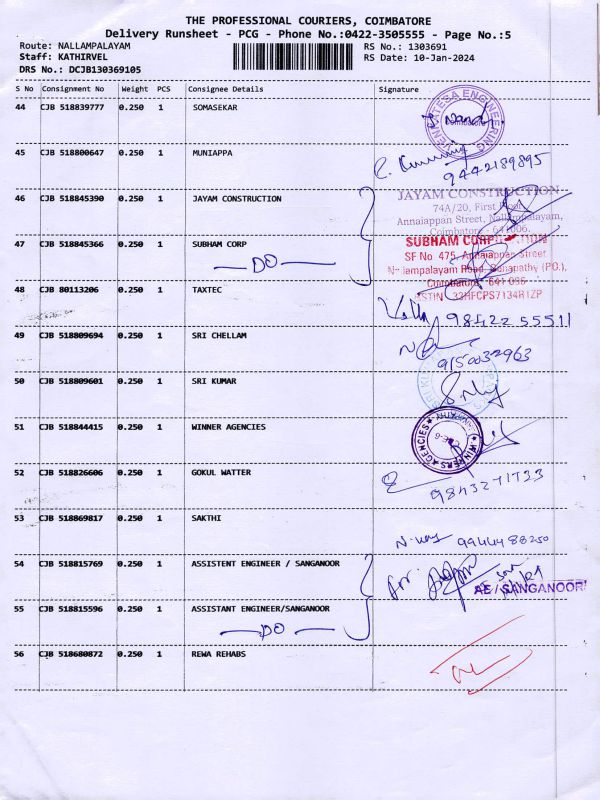 THE PROFESSIONAL COURIERS, COIMBATORE
Delivery Runsheet - PCG - Phone No.:0422-3505555 - Page No.:5
Route: NALLAMPALAYAM RS No.: 1303691
Staff: KATHIRVEL RS Date: 10-Jan-2024
DRS No.: DCJB130369105
S No Consignment No Weight PCS Consignee Details Signature
44 CJB 518839777 0.250 1 SOMASEKAR
VENKATESA ENGINEERING
Coimbatore
45 CJB 518800647 0.250 1 MUNIAPPA
9442189895
46 CJB 518845390 0.250 1 JAYAM CONSTRUCTION
JAYAM CONSTRUCTION
74A/20, First Floor,
Annaiappan Street, Nallampalayam,
Coimbatore - 641 006.
47 CJB 518845366 0.250 1 SUBHAM CORP
DO
SUBHAM CORPORATION
SF No. 475, Annaiappan Street
Nallampalayam Road, Ganapathy (PO.),
Coimbatore - 641 006
48 CJB 80113206 0.250 1 TAXTEC
98422 55511
49 CJB 518809694 0.250 1 SRI CHELLAM
9150032963
50 CJB 518809601 0.250 1 SRI KUMAR
51 CJB 518844415 0.250 1 WINNER AGENCIES
WINNERS AGENCIES
52 CJB 518826606 0.250 1 GOKUL WATTER
53 CJB 518869817 0.250 1 SAKTHI
9944488250
54 CJB 518815769 0.250 1 ASSISTENT ENGINEER / SANGANOOR
AE / SANGANOOR
55 CJB 518815596 0.250 1 ASSISTANT ENGINEER/SANGANOOR
DO
56 CJB 518680872 0.250 1 REWA REHABS